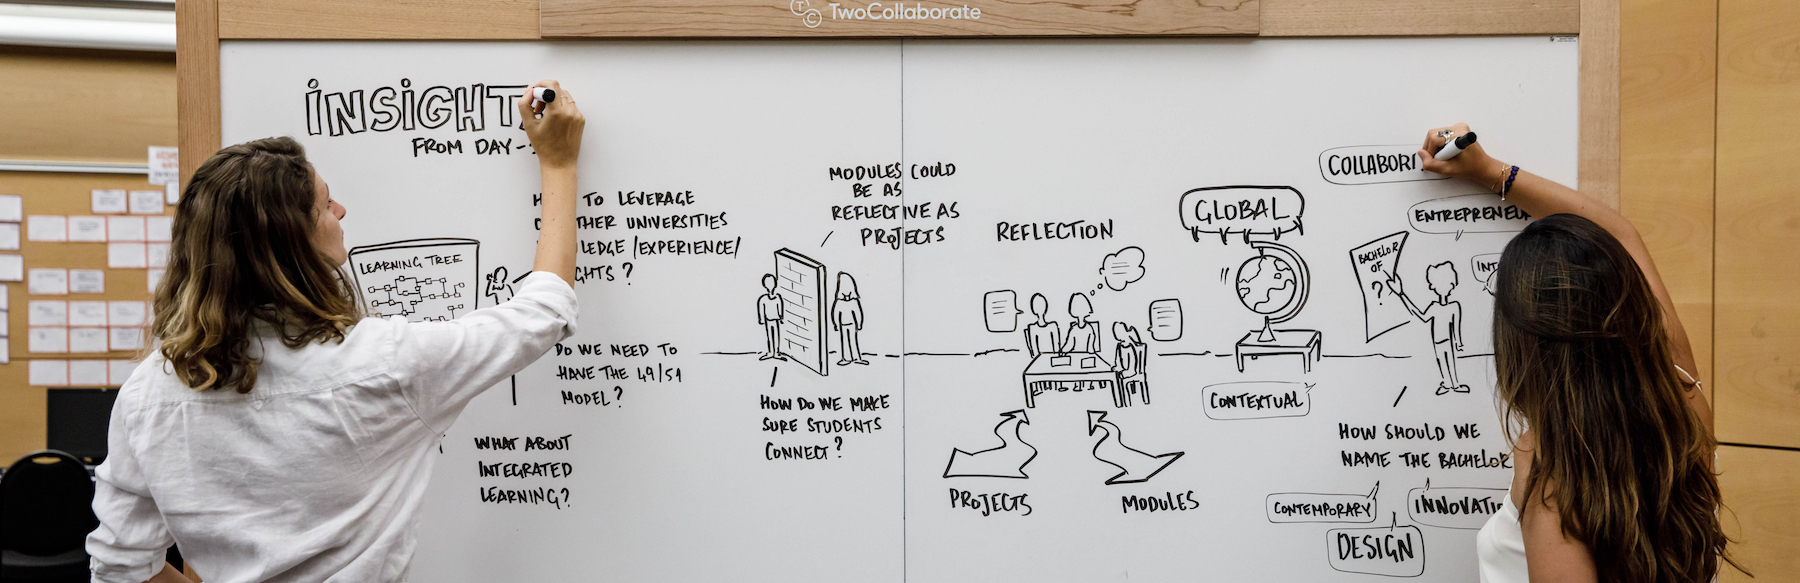 TwoCollaborate
INSIGHT
FROM DAY-
LEARNING TREE
TO LEVERAGE
OTHER UNIVERSITIES
/EXPERIENCE/
?
DO WE NEED TO
HAVE THE 49/51
MODEL?
WHAT ABOUT
INTEGRATED
LEARNING?
MODULES COULD
BE AS
REFLECTIVE AS
PROJECTS
HOW DO WE MAKE
SURE STUDENTS
CONNECT?
REFLECTION
PROJECTS
MODULES
GLOBAL
CONTEXTUAL
COLLABOR
ENTREPRENEU
BACHELOR
OF
?
INT
HOW SHOULD WE
NAME THE BACHELOR
CONTEMPORARY
INNOVATI
DESIGN